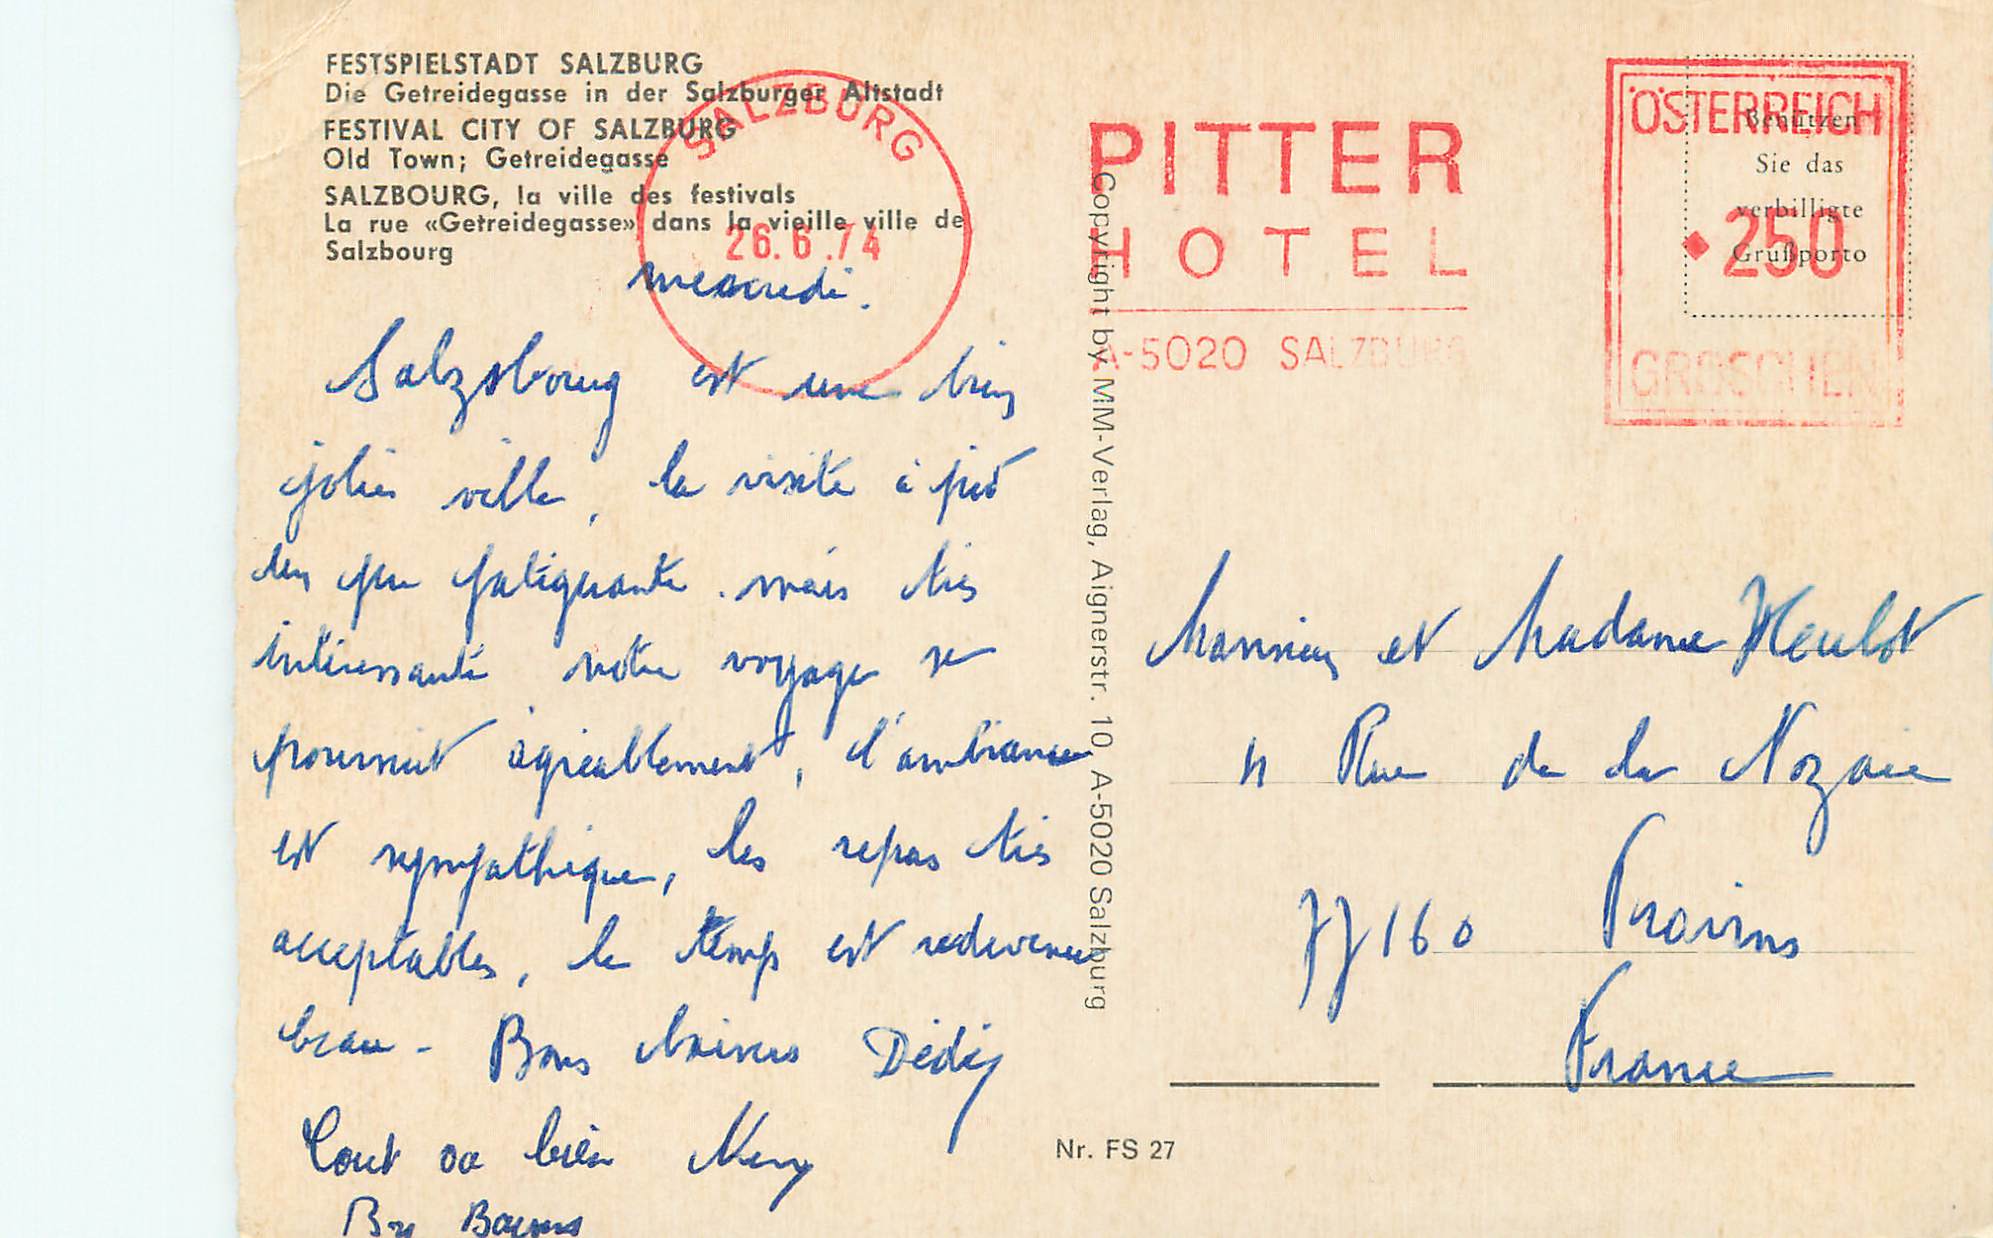 FESTSPIELSTADT SALZBURG
Die Getreidegasse in der Salzburger Altstadt
FESTIVAL CITY OF SALZBURG
Old Town; Getreidegasse
SALZBOURG, la ville des festivals
La rue «Getreidegasse» dans la vieille ville de
Salzbourg
SALZBURG
26.6.74
PITTER
HOTEL
A-5020 SALZBURG
ÖSTERREICH
250
GROSCHEN
Benützen
Sie das
verbilligte
Grußporto
mercredi.
Salzbourg est une bien
jolie ville, la visite à pied
un peu fatigante. mais très
intéressante notre voyage se
poursuit agréablement, l'ambiance
est sympathique, les repas très
acceptables, le temps est redevenu
beau - Bons baisers Dédé
Tout va bien
Bs Baisers
Copyright by MM-Verlag, Aignerstr. 10, A-5020 Salzburg
Monsieur et Madame Heulot
Rue de la
77160 Provins
France
Nr. FS 27